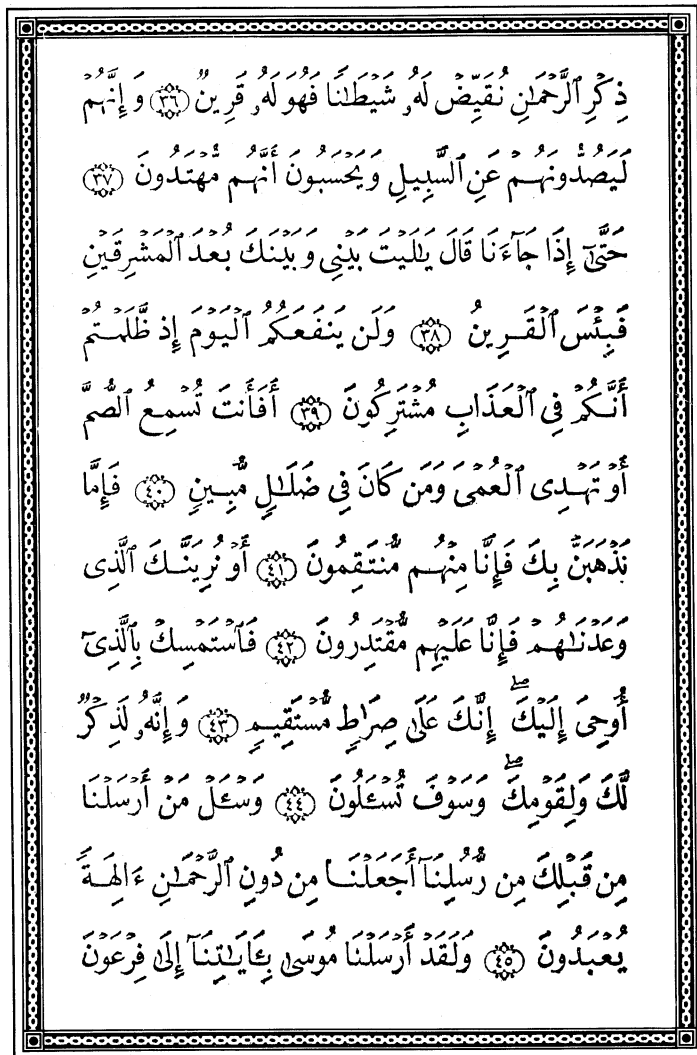 ذِكْرِ ٱلرَّحْمَـٰنِ نُقَيِّضْ لَهُۥ شَيْطَـٰنًا فَهُوَ لَهُۥ قَرِينٌ ﴿٣٦﴾ وَإِنَّهُمْ
لَيَصُدُّونَهُمْ عَنِ ٱلسَّبِيلِ وَيَحْسَبُونَ أَنَّهُم مُّهْتَدُونَ ﴿٣٧﴾
حَتَّىٰٓ إِذَا جَآءَنَا قَالَ يَـٰلَيْتَ بَيْنِى وَبَيْنَكَ بُعْدَ ٱلْمَشْرِقَيْنِ
فَبِئْسَ ٱلْقَرِينُ ﴿٣٨﴾ وَلَن يَنفَعَكُمُ ٱلْيَوْمَ إِذ ظَّلَمْتُمْ
أَنَّكُمْ فِى ٱلْعَذَابِ مُشْتَرِكُونَ ﴿٣٩﴾ أَفَأَنتَ تُسْمِعُ ٱلصُّمَّ
أَوْ تَهْدِى ٱلْعُمْىَ وَمَن كَانَ فِى ضَلَـٰلٍ مُّبِينٍ ﴿٤٠﴾ فَإِمَّا
نَذْهَبَنَّ بِكَ فَإِنَّا مِنْهُم مُّنتَقِمُونَ ﴿٤١﴾ أَوْ نُرِيَنَّكَ ٱلَّذِى
وَعَدْنَـٰهُمْ فَإِنَّا عَلَيْهِم مُّقْتَدِرُونَ ﴿٤٢﴾ فَٱسْتَمْسِكْ بِٱلَّذِىٓ
أُوحِىَ إِلَيْكَ ۖ إِنَّكَ عَلَىٰ صِرَٰطٍ مُّسْتَقِيمٍ ﴿٤٣﴾ وَإِنَّهُۥ لَذِكْرٌ
لَّكَ وَلِقَوْمِكَ ۖ وَسَوْفَ تُسْـَٔلُونَ ﴿٤٤﴾ وَسْـَٔلْ مَنْ أَرْسَلْنَا
مِن قَبْلِكَ مِن رُّسُلِنَآ أَجَعَلْنَا مِن دُونِ ٱلرَّحْمَـٰنِ ءَالِهَةً
يُعْبَدُونَ ﴿٤٥﴾ وَلَقَدْ أَرْسَلْنَا مُوسَىٰ بِـَٔايَـٰتِنَآ إِلَىٰ فِرْعَوْنَ